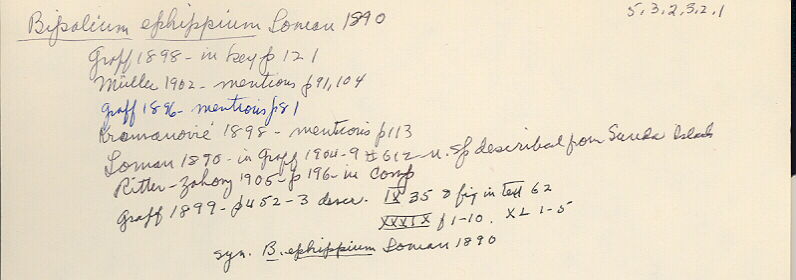 5.3.2.3.2.1
Bipalium ephippium Loman 1890
Graff 1898 - in key p 121
Müller 1902 - mentions p 91, 104
Graff 1896 - mentions p 81
Kramanović 1898 - mentions p 113
Loman 1890 - in Graff 1904-9 # 612 n. sp described from Sunda Islands
Ritter-Zahony 1905 - p 196 - in comp
Graff 1899 - p 452-3 descr. IX 35 & fig in text 62
XXXIX f 1-10. XL 1-5
syn. B. ephippium Loman 1890